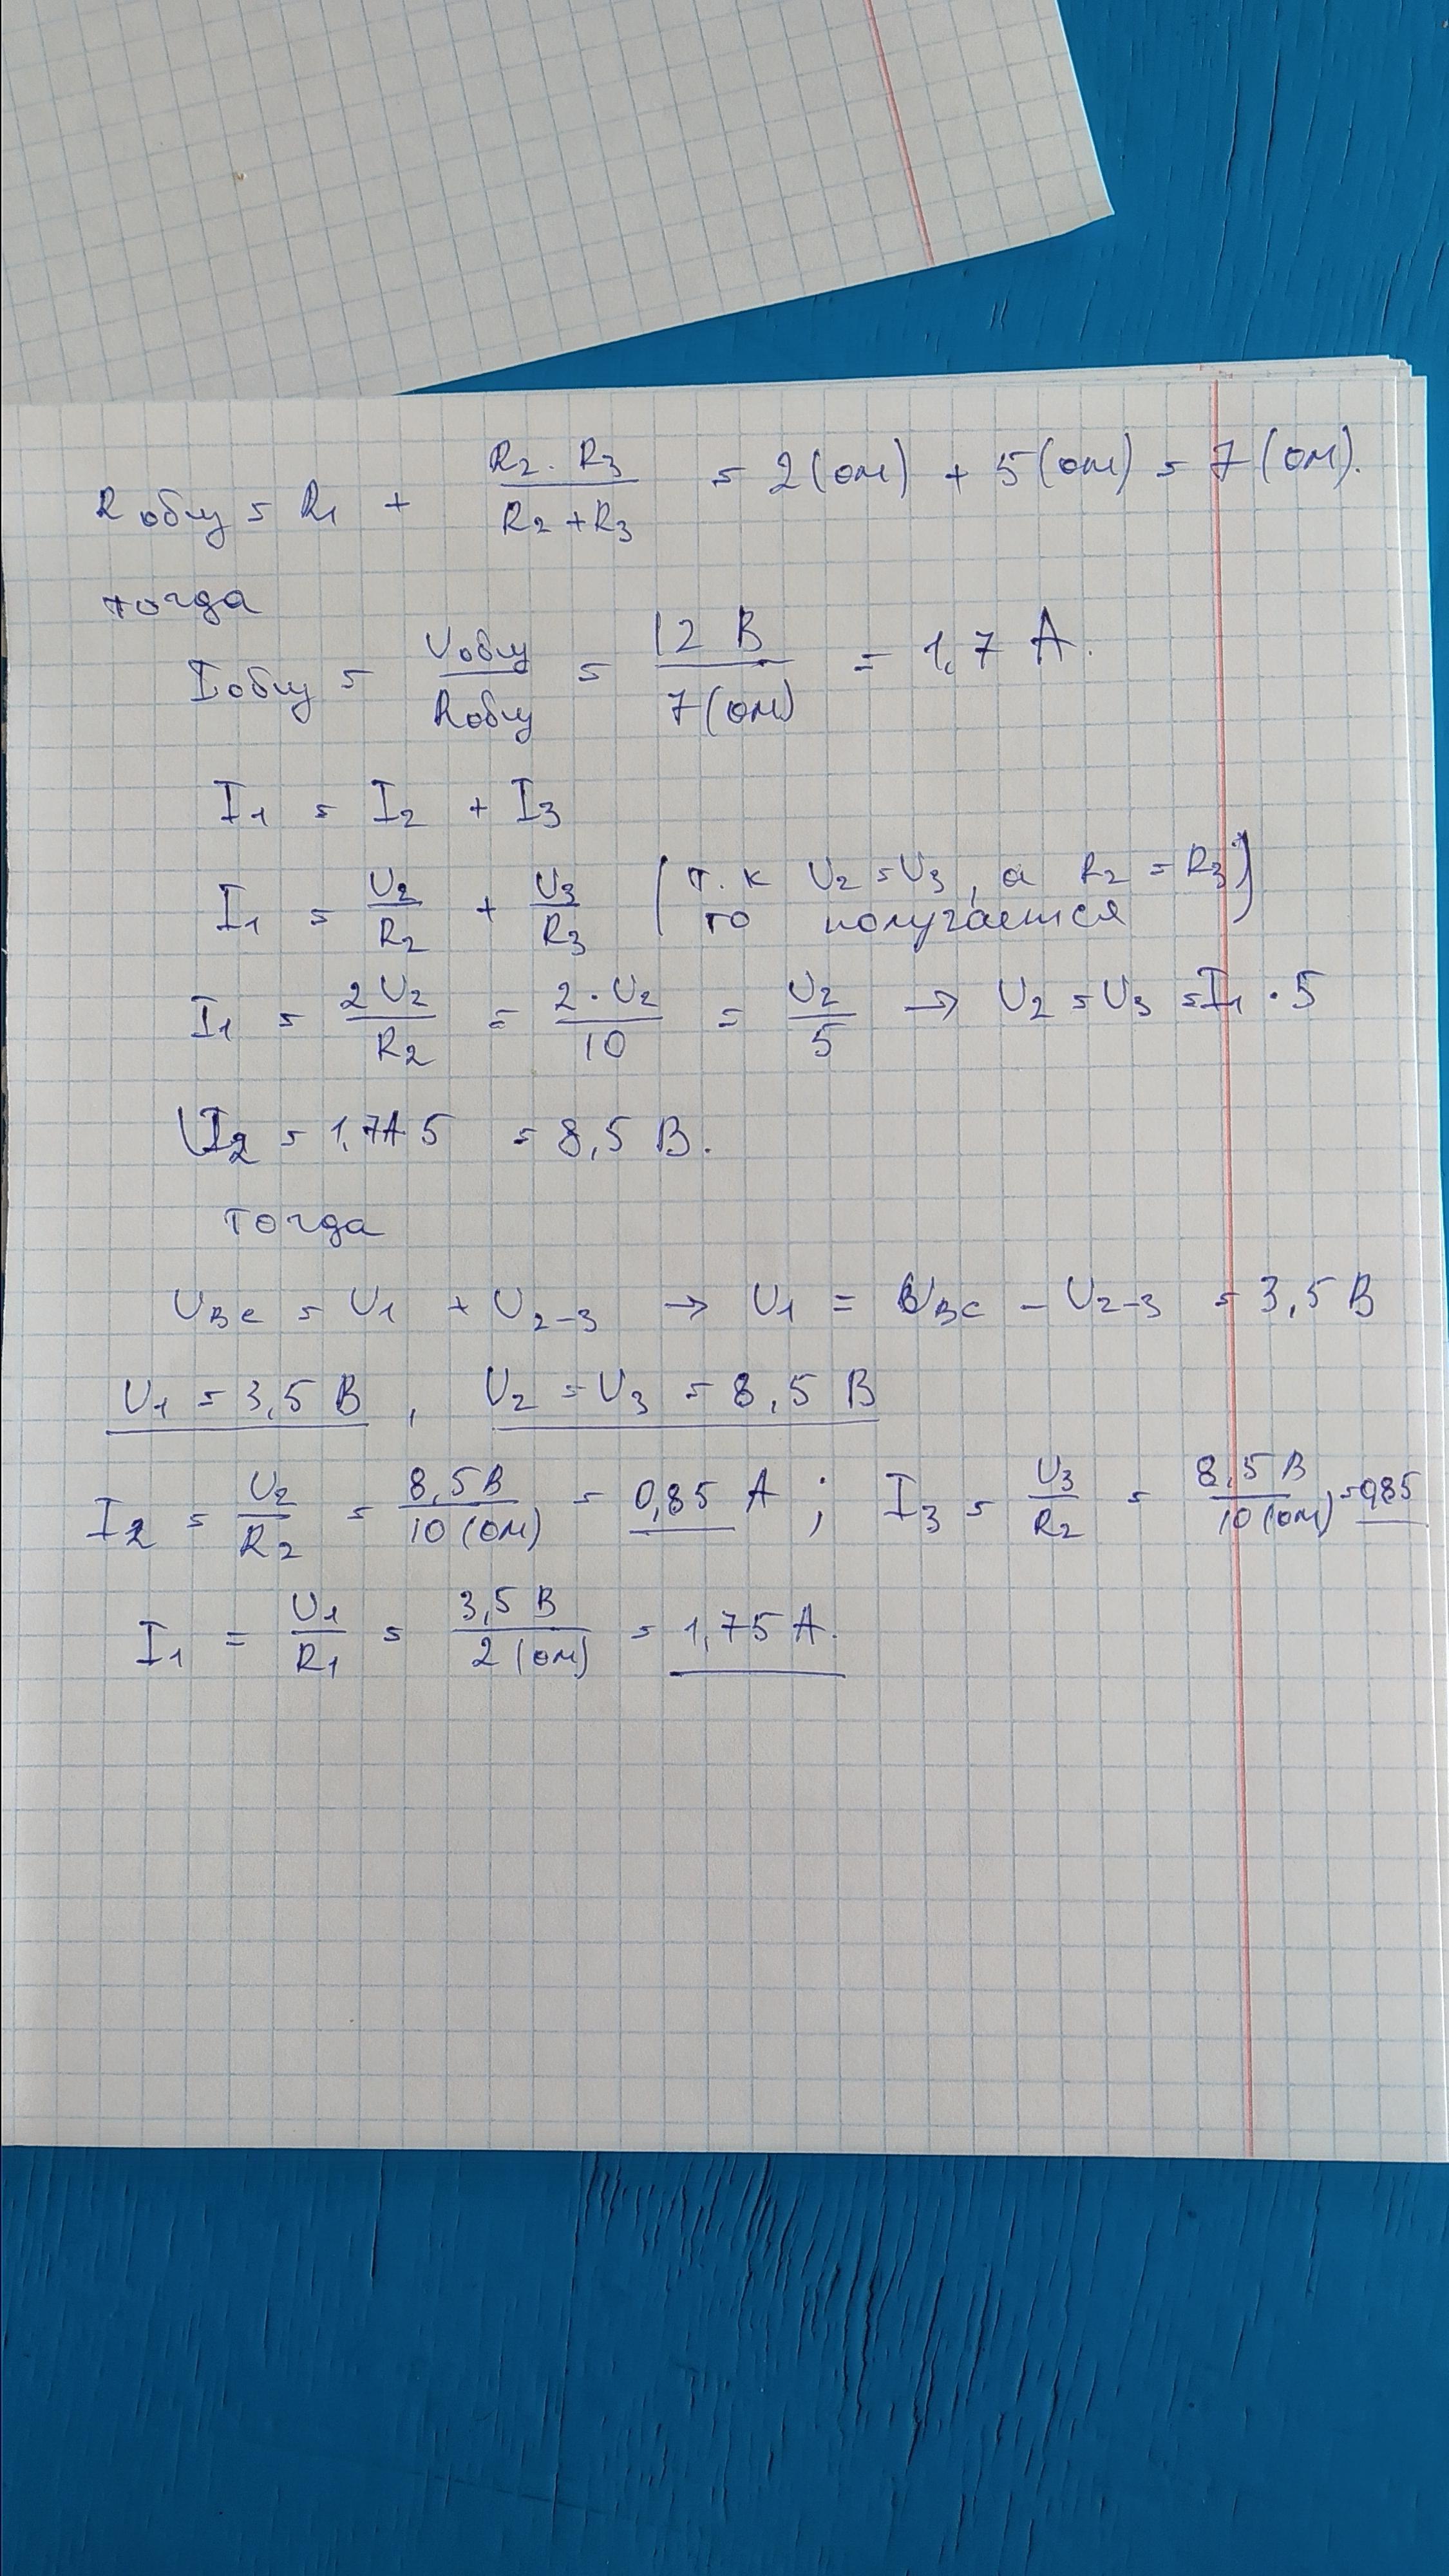 Rобщ = R1 + R2 · R3 / R2 + R3 = 2 (ом) + 5 (ом) = 7 (ом).
тогда
Iобщ = Uобщ / Rобщ = 12 В / 7 (ом) = 1,7 А.
I1 = I2 + I3
I1 = U2 / R2 + U3 / R3 (т. к U2 = U3, а R2 = R3, то получается)
I1 = 2U2 / R2 = 2 · U2 / 10 = U2 / 5 → U2 = U3 = I1 · 5
= 1,7А 5 = 8,5 В.
тогда
Uвс = U1 + U2-3 → U1 = Uвс - U2-3 = 3,5 В
U1 = 3,5 В, U2 = U3 = 8,5 В
I2 = U2 / R2 = 8,5 В / 10 (ом) = 0,85 А ; I3 = U3 / R2 = 8,5 В / 10 (ом) = 0,85
I1 = U1 / R1 = 3,5 В / 2 (ом) = 1,75 А.